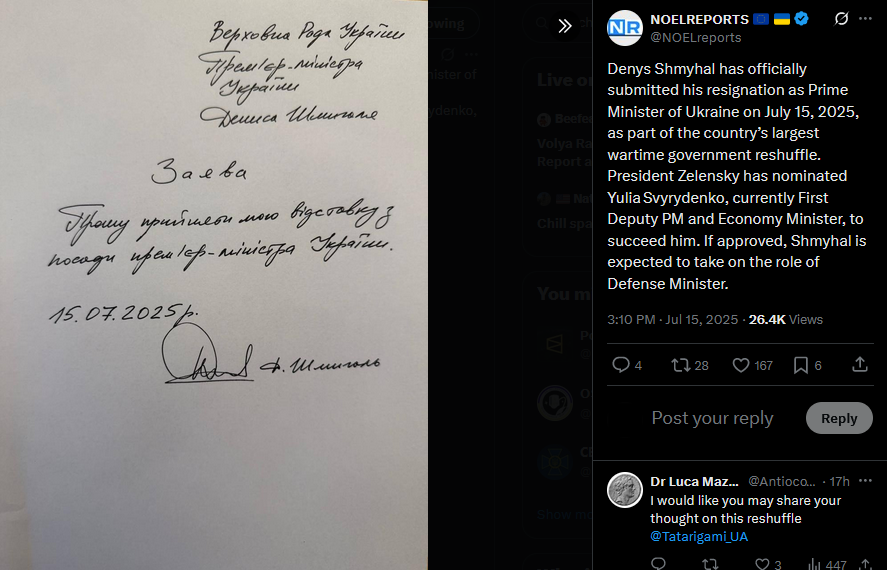 Верховна Рада України
Прем'єр-міністра
України
Дениса Шмигаля
Заява
Прошу прийняти мою відставку з
посади прем'єр-міністра України.
15.07.2025р.
Д. Шмигаль
NOELREPORTS
@NOELreports
Denys Shmyhal has officially
submitted his resignation as Prime
Minister of Ukraine on July 15, 2025,
as part of the country’s largest
wartime government reshuffle.
President Zelensky has nominated
Yulia Svyrydenko, currently First
Deputy PM and Economy Minister, to
succeed him. If approved, Shmyhal is
expected to take on the role of
Defense Minister.
3:10 PM · Jul 15, 2025 · 26.4K Views
4 28 167 6
Post your reply Reply
Dr Luca Maz... @Antioco... · 17h
I would like you may share your
thought on this reshuffle
@Tatarigami_UA
3 447